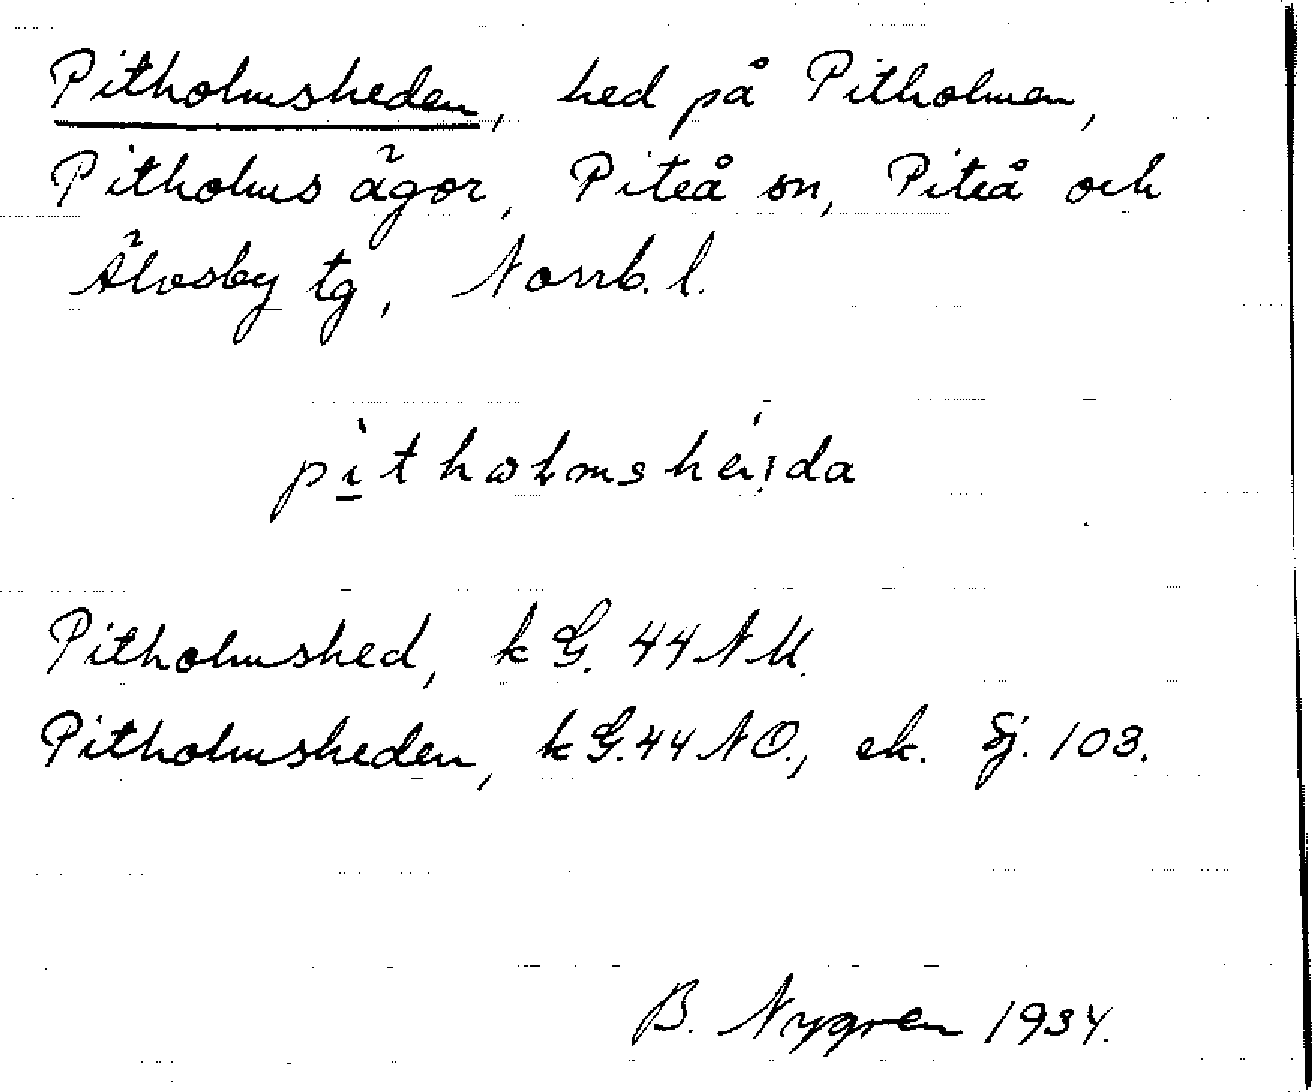 Pitholmsheden, hed på Pitholmen,
Pitholms ägor, Piteå sn, Piteå och
Älvsby tg, Norrb. l.
pìtholmshéi̯da
Pitholmshed, k G. 44 N U.
Pitholmsheden, k G. 44 N O., ek. Sj. 103.
B. Nygren 1934.